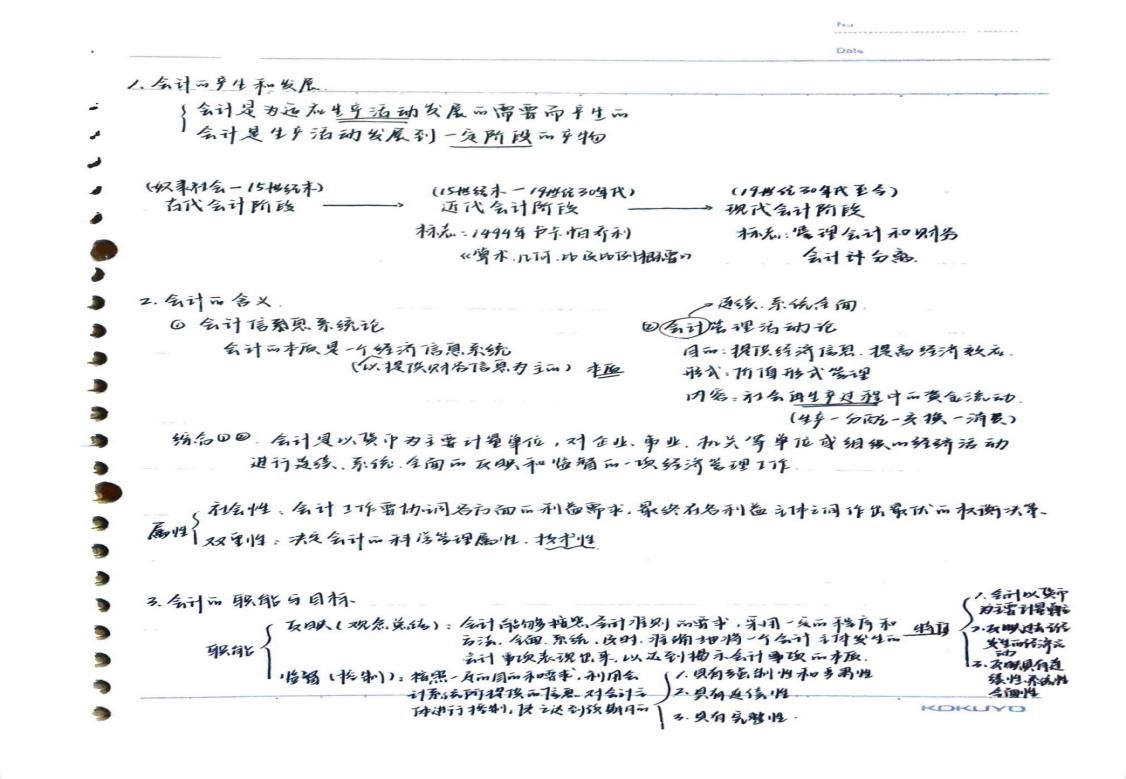 No
Date
1. 会计的产生和发展.
会计是为适应生产活动发展的需要而产生的
会计是生产活动发展到一定阶段的产物
(奴隶社会—15世纪末) (15世纪末—19世纪30年代) (19世纪30年代至今)
古代会计阶段 → 近代会计阶段 → 现代会计阶段
标志:1494年卢卡帕乔利 标志:管理会计和财务
《算术、几何、比及比例概要》 会计计分离.
2. 会计的含义.
连续.系统.全面.
① 会计信息系统论 ②会计管理活动论
会计的本质是一个经济信息系统 目的:提供经济信息.提高经济效应.
(以提供财务信息为主的) 本质 形式:价值形式管理
内容:社会再生产过程中的资金流动.
(生产—分配—交换—消费)
综合①②. 会计是以货币为主要计量单位,对企业、事业、机关等单位或组织的经济活动
进行连续、系统、全面的反映和监督的一项经济管理工作.
属性
社会性:会计工作需协调各方面的利益需求,最终在各利益主体之间作出最优的权衡决策.
双重性:决定会计的科学管理属性.技术性
3. 会计的职能与目标.
职能
反映(观念总结):会计能够按照会计准则的要求,采用一定的程序和
方法,全面、系统、及时、准确地将一个会计主体发生的
会计事项表现出来,以达到揭示会计事项的本质. 特点
1. 会计以货币
为主要计量单位
2. 反映过去已经
发生的经济活
动
3. 反映具有连
续性.系统性
全面性
监督(控制):按照一定的目的和要求,利用会
计系统所提供的信息,对会计主
体进行控制,使之达到预期目的
1. 具有强制性和严肃性
2. 具有连续性.
3. 具有完整性.
KOKUYO